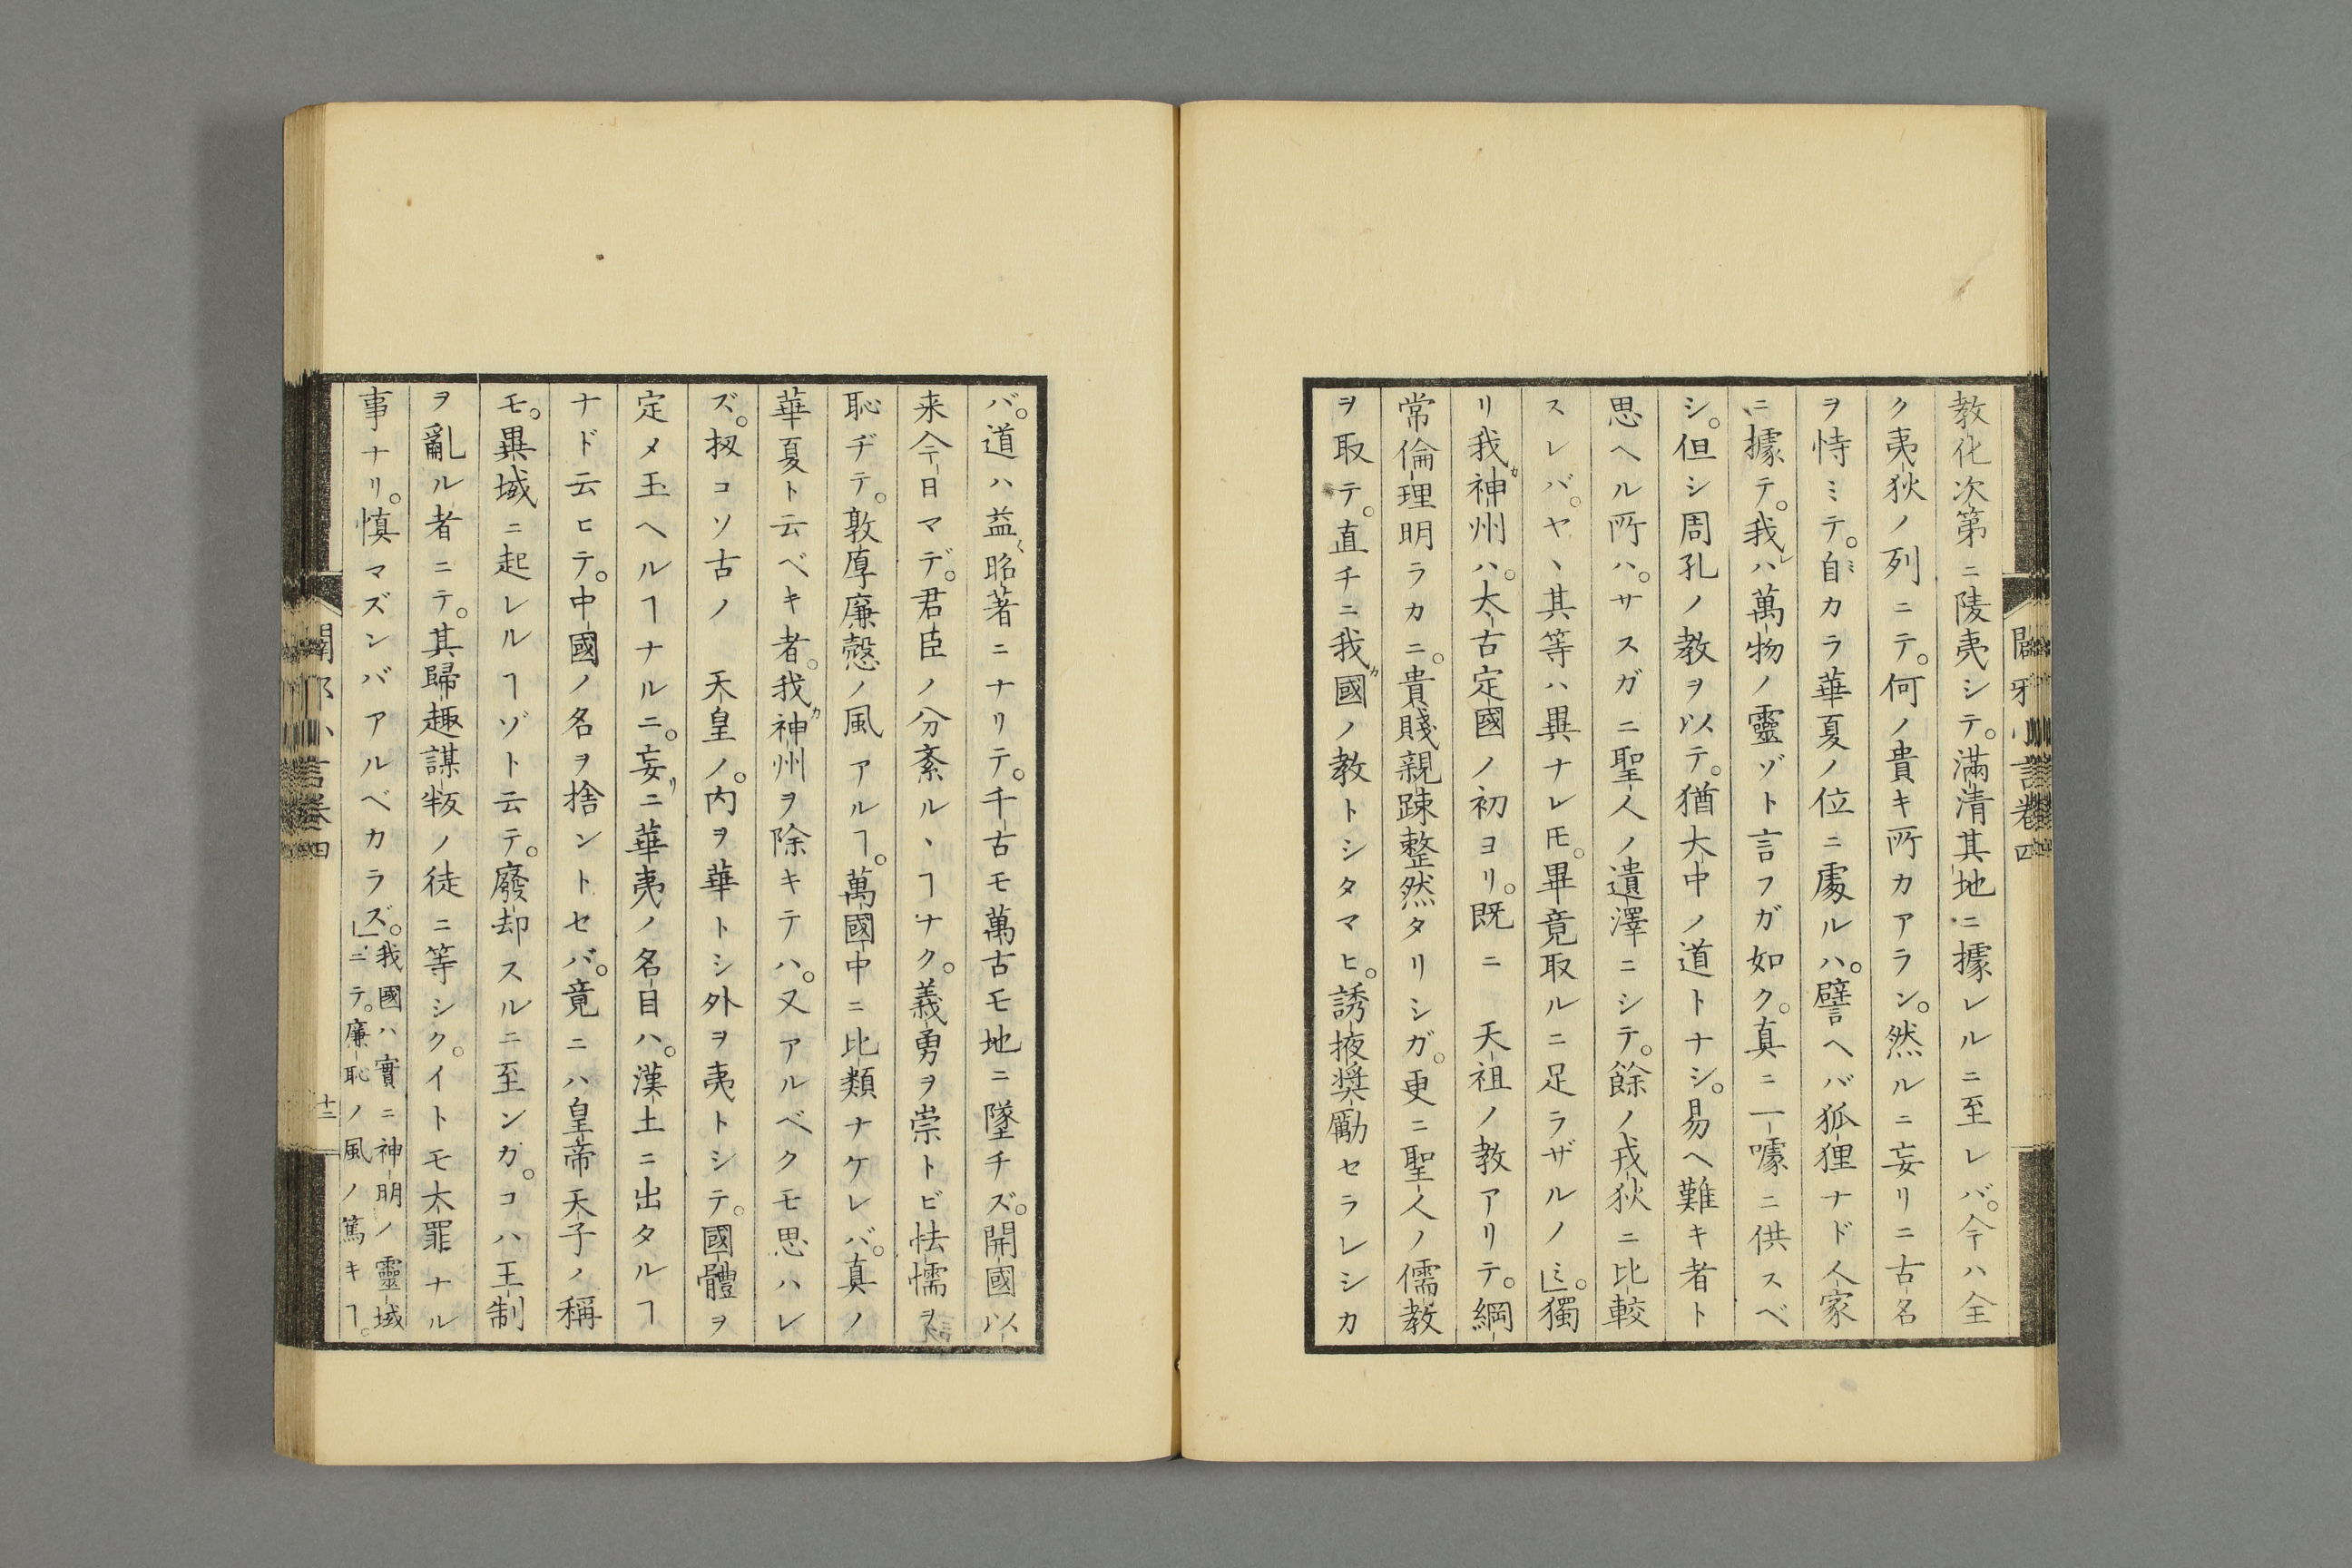 教化次第ニ陵夷シテ。滿清其地ニ據レルニ至レバ。今ハ全
ク夷狄ノ列ニテ。何ノ貴キ所カアラン。然ルニ妄リニ古名
ヲ恃ミテ。自カラ華夏ノ位ニ處ルハ。譬ヘバ狐狸ナド人家
ニ據テ。我レハ萬物ノ靈ゾト言フガ如ク。真ニ一噱ニ供スベ
シ。但シ周孔ノ教ヲ以テ。猶大中ノ道トナシ。易ヘ難キ者ト
思ヘル所ハ。サスガニ聖人ノ遺澤ニシテ。餘ノ戎狄ニ比較
スレバ。ヤヽ其等ハ異ナレ𪜈。畢竟取ルニ足ラザルノミ。」獨
リ我カ神州ハ。太古定國ノ初ヨリ。既ニ　天祖ノ教アリテ。綱
常倫理明ラカニ。貴賤親踈整然タリシガ。更ニ聖人ノ儒教
ヲ取テ。直チニ我カ國ノ教トシタマヒ。誘掖奨勵セラレシカ
バ。道ハ益〻昭著ニナリテ。千古モ萬古モ地ニ墜チズ。開國以
来今日マデ。君臣ノ分紊ルヽヿナク。義勇ヲ崇トビ怯懦ヲ
恥ヂテ。敦厚廉愨ノ風アルヿ。萬國中ニ比類ナケレバ。真ノ
華夏ト云ベキ者。我カ神州ヲ除キテハ。又アルベクモ思ハレ
ズ。扨コソ古ノ　天皇ノ。内ヲ華トシ外ヲ夷トシテ。國體ヲ
定メ玉ヘルヿナルニ。妄リニ華夷ノ名目ハ。漢土ニ出タルヿ
ナド云ヒテ。中國ノ名ヲ捨ントセバ。竟ニハ皇帝天子ノ稱
モ。異域ニ起レルヿゾト云テ。廢却スルニ至ンカ。コハ王制
ヲ亂ル者ニテ。其歸趣謀叛ノ徒ニ等シク。イトモ太罪ナル
事ナリ。慎マズンバアルベカラズ。」我國ハ實ニ神明ノ靈域
ニテ。廉恥ノ風ノ篤キヿ。
闢邪小言卷四
十二